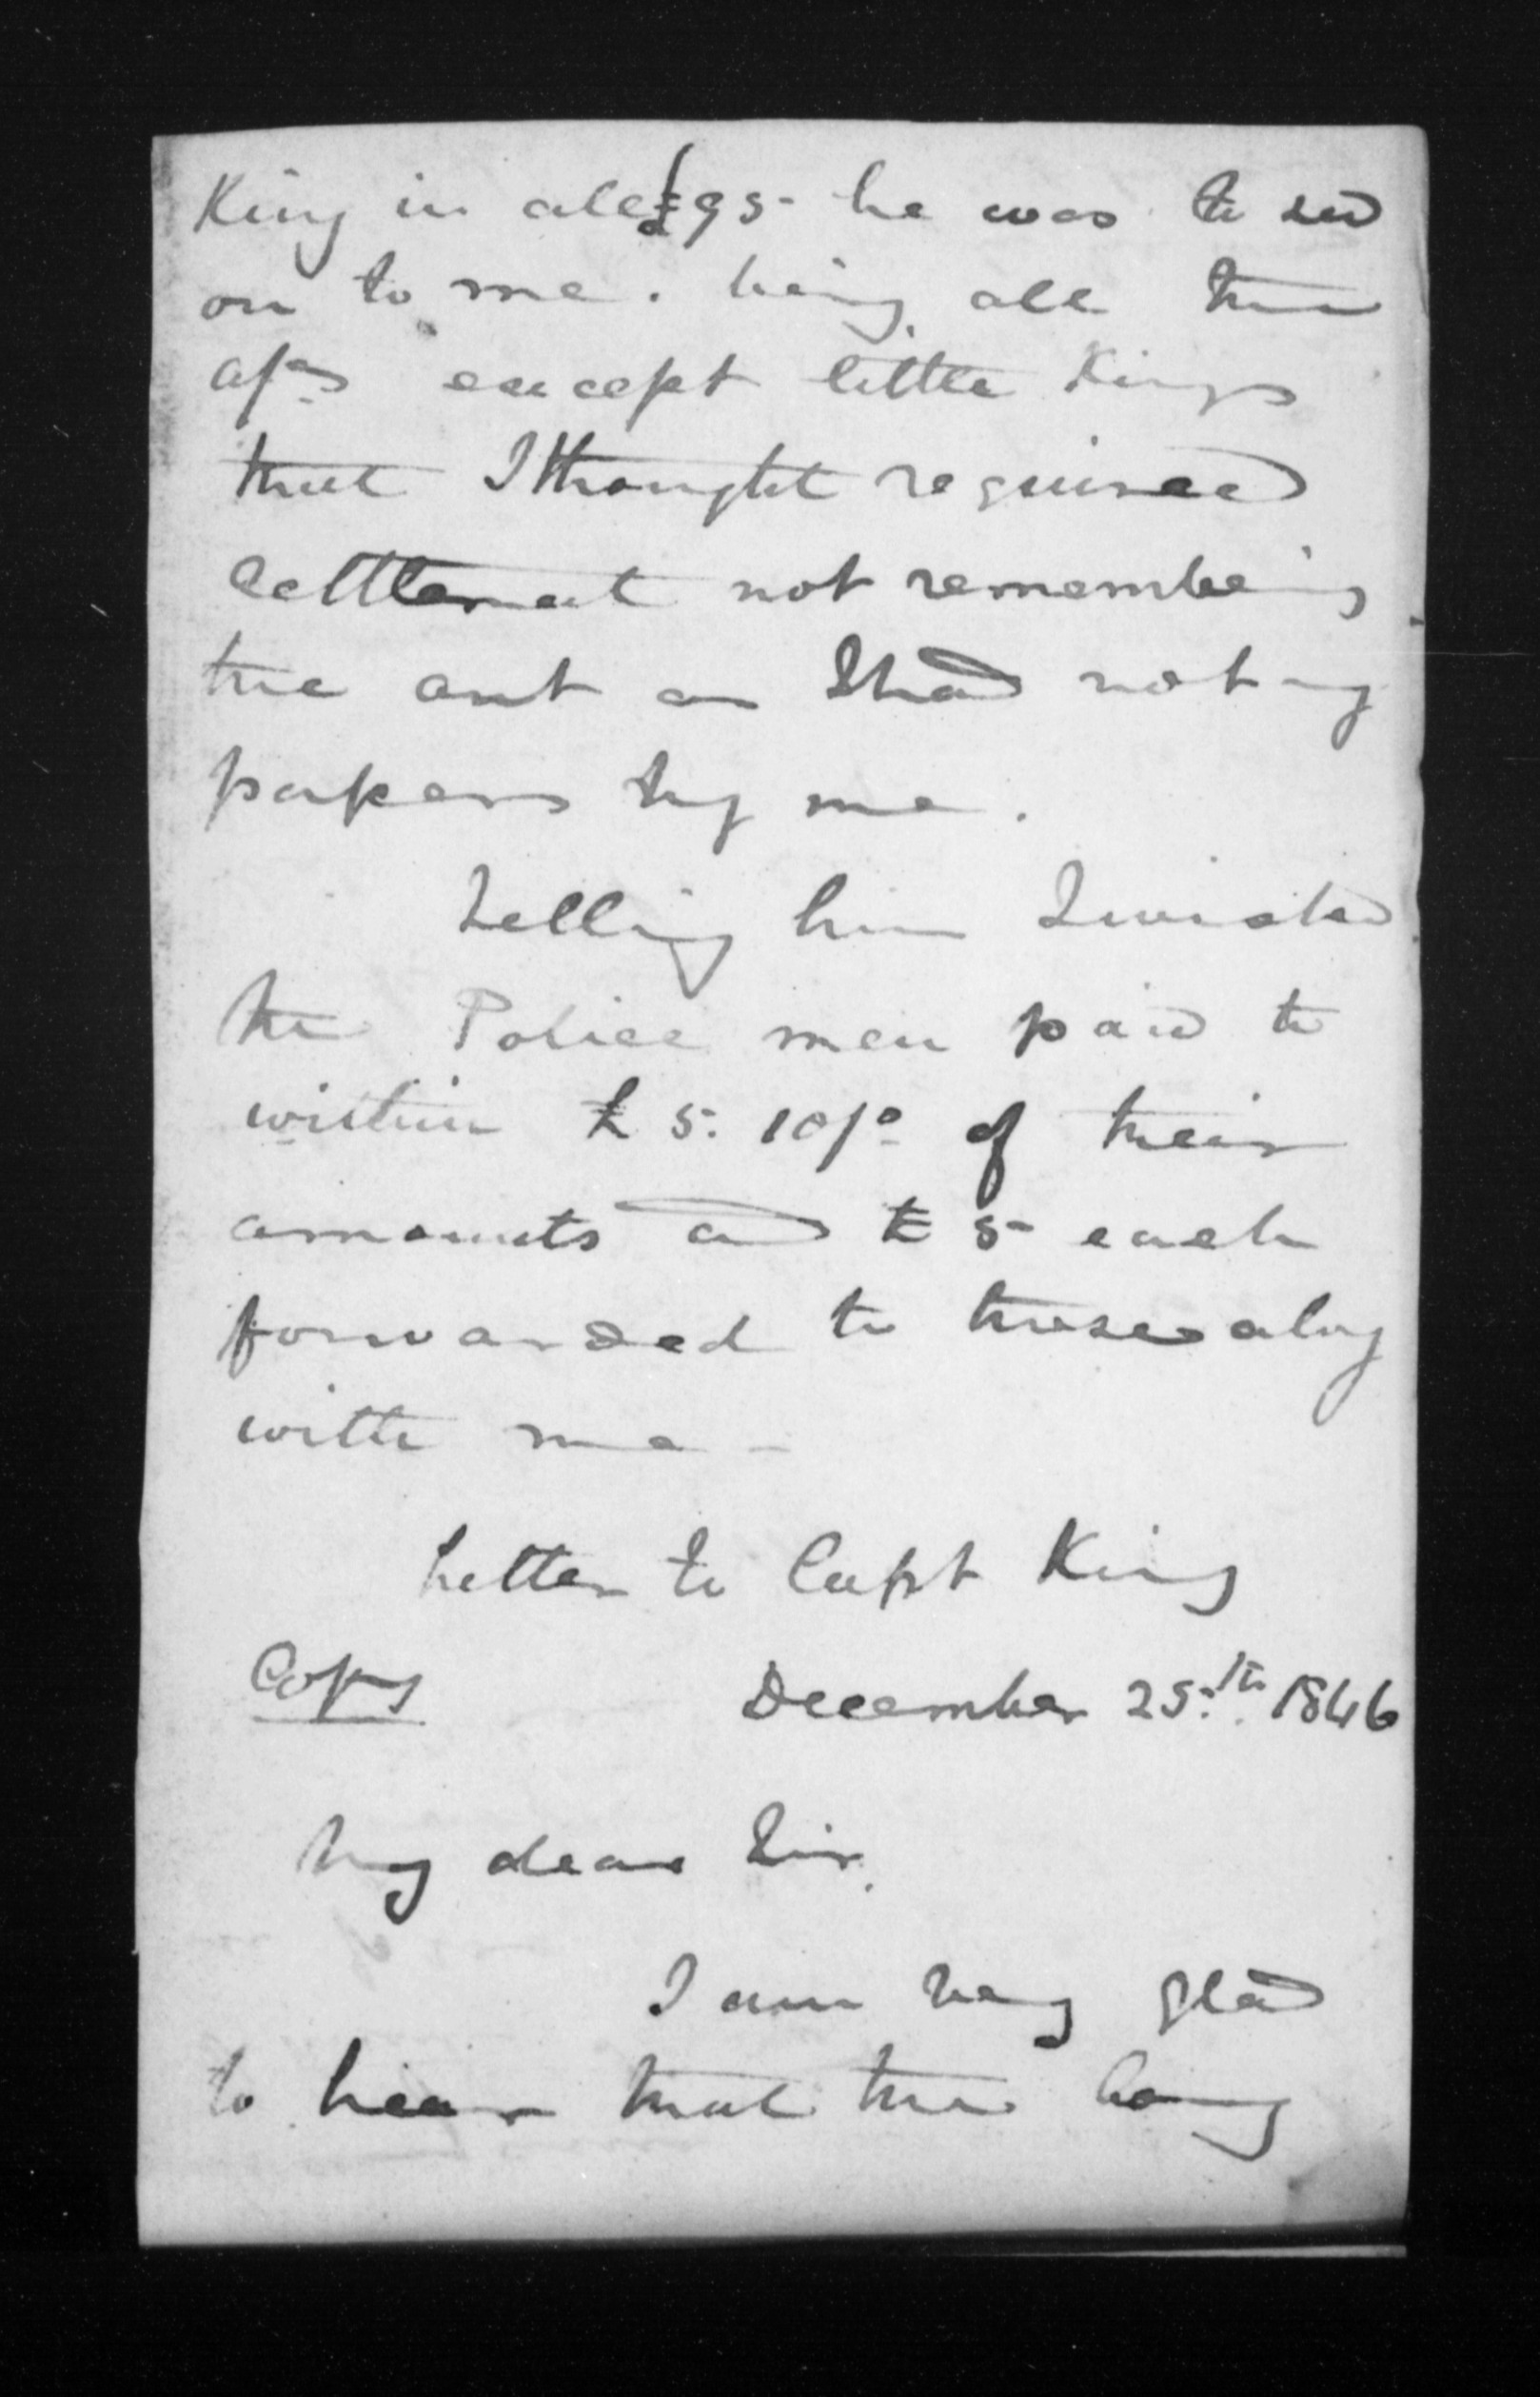 King in all £95- he was to send
on to me. being all the
a/cs except little Kings
that I thought required
settlement not remembering
the amt as I had not my
papers by me.
telling him I wished
the Police men paid to
within £5. 10/0 of their
amounts and £5- each
forwarded to those along
with me -
Letter to Capt King
Copy December 25th 1846
My dear Sir,
I am very glad
to hear that the